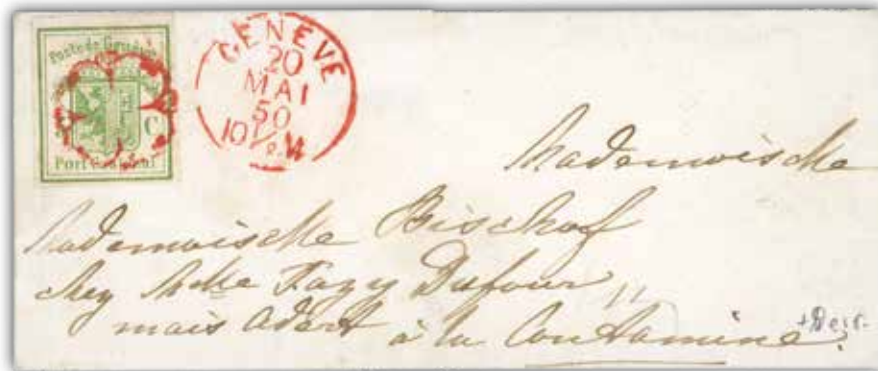 Poste de Genève
C
Port Cantonal
GENÈVE
20
MAI
50
10 1/2 M
Mademoiselle
Mademoiselle Bischof
chez Mlle Fazy Dufour
mais Adert à la Contamine.